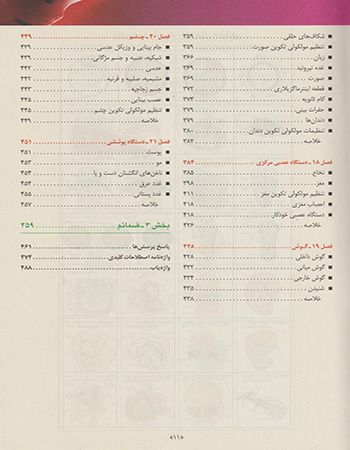 شکاف‌های حلقی ۳۵۹
تنظیم مولکولی تکوین صورت ۳۵۹
زبان ۳۶۶
غده تیروئید ۳۶۹
صورت ۳۶۹
قطعه اینترماگزیلاری ۳۷۲
کام ثانویه ۳۷۴
حفرات بینی ۳۷۹
دندان‌ها ۳۷۹
تنظیمات مولکولی تکوین دندان ۳۸۰
خلاصه ۳۸۲
فصل ۱۸ ـ دستگاه عصبی مرکزی ۳۸۴
نخاع ۳۸۵
مغز ۳۹۸
تنظیم مولکولی تکوین مغز ۴۱۱
اعصاب مغزی ۴۱۸
دستگاه عصبی خودکار ۴۱۸
خلاصه ۴۲۶
فصل ۱۹ ـ گوش ۴۲۸
گوش داخلی ۴۲۸
گوش میانی ۴۳۲
گوش خارجی ۴۳۴
شنیدن ۴۳۵
خلاصه ۴۳۸
فصل ۲۰ ـ چشم ۴۳۹
جام بینایی و وزیکل عدسی ۴۳۹
شبکیه، عنبیه و جسم مژگانی ۴۳۹
عدسی ۴۴۲
مشیمیه، صلبیه و قرنیه ۴۴۲
جسم زجاجیه ۴۴۳
عصب بینایی ۴۴۵
تنظیم مولکولی تکوین چشم ۴۴۵
خلاصه ۴۴۹
فصل ۲۱ ـ دستگاه پوششی ۴۵۱
پوست ۴۵۱
مو ۴۵۳
ناخن‌های انگشتان دست و پا ۴۵۴
غدد عرق ۴۵۴
غدد پستانی ۴۵۵
خلاصه ۴۵۷
بخش ۳ ـ ضمائم ۴۵۹
پاسخ پرسش‌ها ۴۶۱
واژه‌نامه اصطلاحات کلیدی ۴۷۴
واژه‌یاب ۴۸۸
«۱۱»